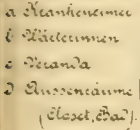 a Krankenzimmer
b Wärterinnen
c Veranda
d Aussenräume
(Closet, Bad).